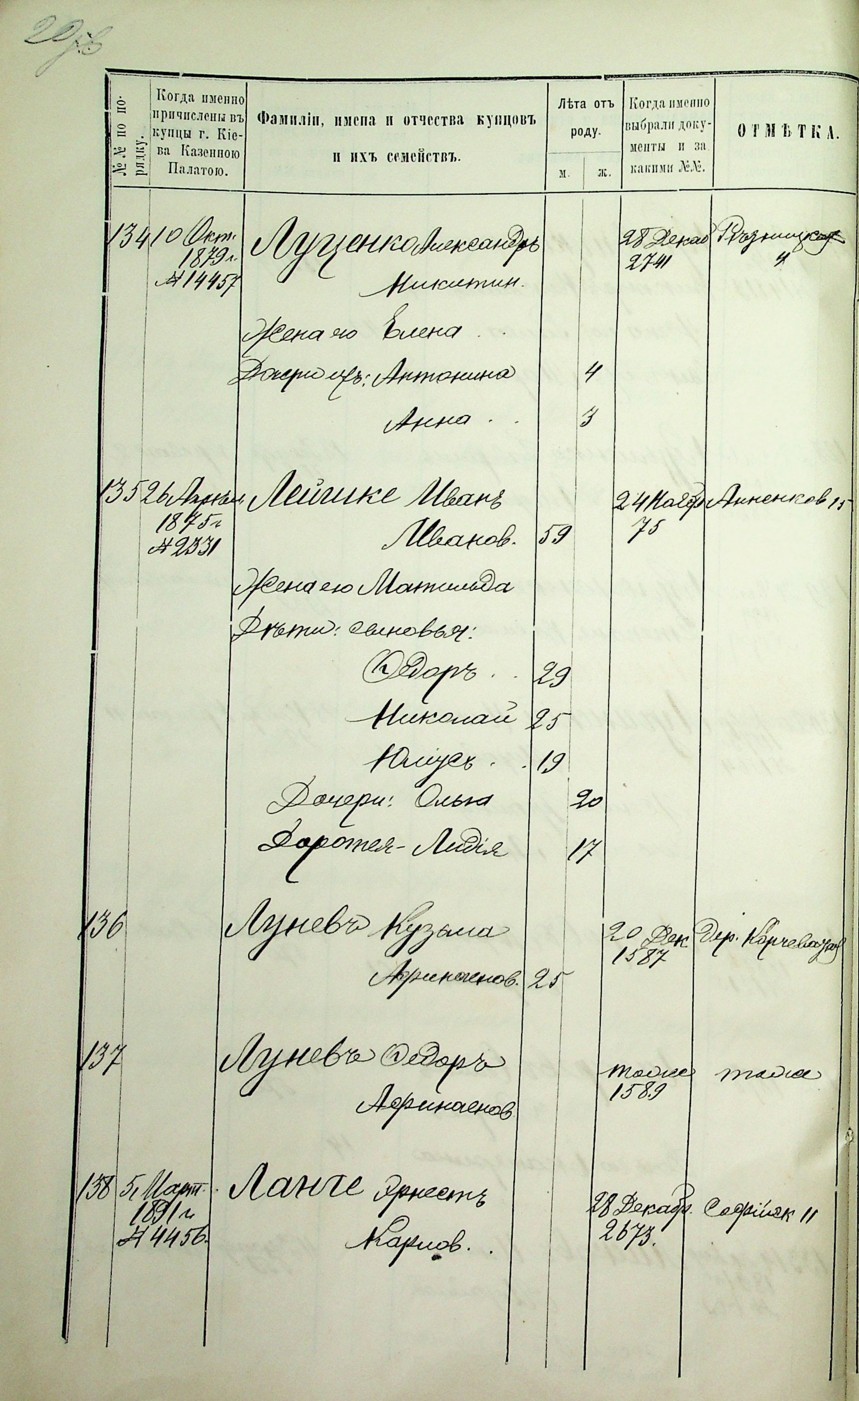 №№ по по-
рядку.
Когда именно
причислены въ
купцы г. Кіе-
ва Казенною
Палатою.
Фамиліи, имена и отчества купцовъ
и ихъ семействъ.
Лѣта отъ
роду.
м.
ж.
Когда именно
выбрали доку-
менты и за
какими №№.
ОТМѢТКА.
134 10 Окт. Луценко Александръ 28 Декаб
1879 г. 2741 4
№ 14457 Никитин.
Жена его Елена . .
Дочери ихъ: Антонина 4
Анна . . 3
135 26 Апрѣл Лейшке Иванъ 24 Ноябр Анненков 15
1875 г. 75
№ 2331 Иванов. 59
Жена его Матильда
Дѣти: сыновья:
Ѳедоръ . . 29
Николай 25
Юліусъ . . 19
Дочери: Ольга 20
Доротея-Лидія 17
136 Луневъ Кузьма 20 Дек дер.
1587
25
137 Луневъ Ѳедоръ тоже тоже
1589
138 5 Март. Ланге Эрнестъ 28 Декабр. Софійск 11
1891 г. 2673.
№ 4456. Карлов. .